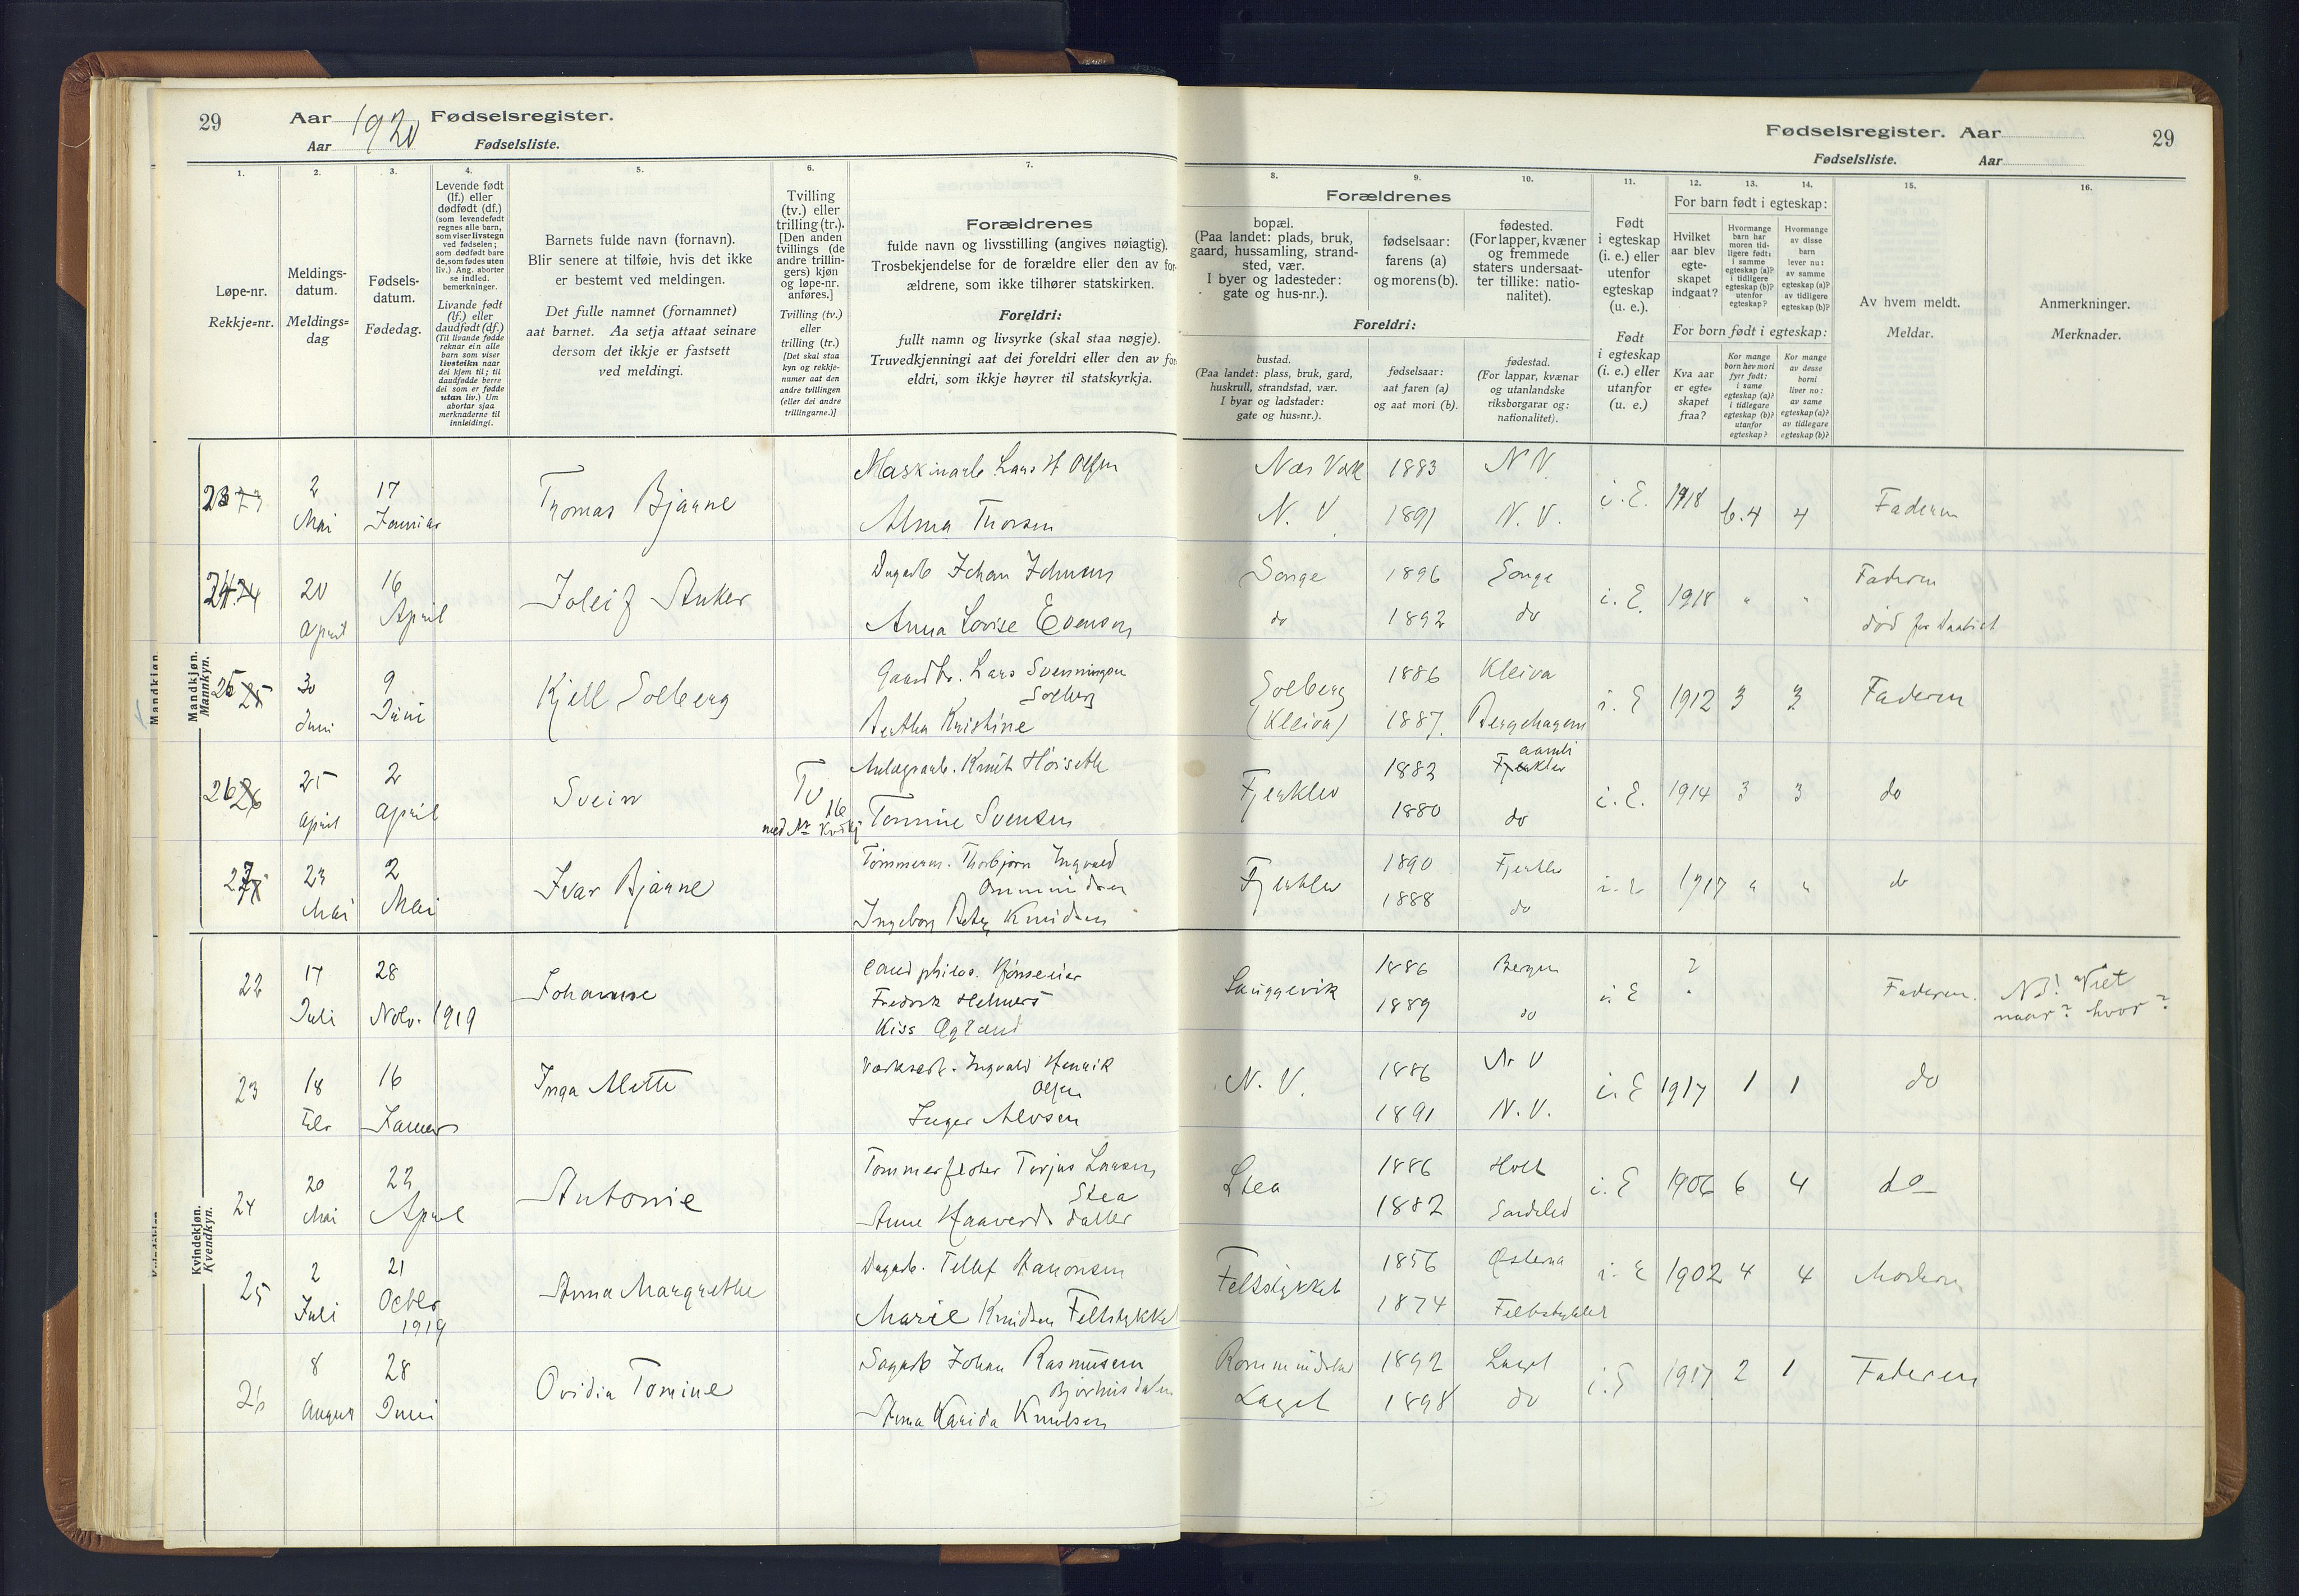 29
Aar 1920 Fødselsregister.
Aar Fødselsliste.
Fødselsregister. Aar
29
Fødselsliste. Aar
1.
2.
3.
4.
5.
6.
7.
8.
9.
10.
11.
12.
13.
14.
15.
16.
Løpe-nr.
Rekkje=nr.
Meldings-
datum.
Meldings=
dag
Fødsels-
datum.
Fødedag.
Levende født
(lf.) eller
dødfødt (df.)
(som levendefødt
regnes alle barn,
som viser livstegn
ved fødselen;
som dødfødt bare
de, som fødes uten
liv.) Ang. aborter
se indled.
bemerkninger.
Livande født
(lf.) eller
daudfødt (df.)
(Til livande fødde
reknar ein alle
barn som viser
livsteikn naar
dei kjem til; til
daudfødde berre
dei som er fødde
utan liv.) Um
abortar sjaa
merknaderne til
innleidingi.
Barnets fulde navn (fornavn).
Blir senere at tilføie, hvis det ikke
er bestemt ved meldingen.
Det fulle namnet (fornamnet)
aat barnet. Aa setja attaat seinare
dersom det ikkje er fastsett
ved meldingi.
Tvilling
(tv.) eller
trilling (tr.).
[Den anden
tvillings (de
andre trillin-
gers) kjøn
og løpe-nr.
anføres.]
Tvilling (tv.)
eller
trilling (tr.)
[Det skal staa
kyn og rekkje-
numer aat den
andre tvillingen
(eller dei andre
trillingarne.)]
Forældrenes
fulde navn og livsstilling (angives nøiagtig).
Trosbekjendelse for de forældre eller den av for-
ældrene, som ikke tilhører statskirken.
Foreldri:
fullt namn og livsyrke (skal staa nøgje).
Truvedkjenningi aat dei foreldri eller den av for
eldri, som ikkje høyrer til statskyrkja.
Forældrenes
bopæl.
(Paa landet: plads, bruk,
gaard, hussamling, strand-
sted, vær.
I byer og ladesteder:
gate og hus-nr.).
fødselsaar:
farens (a)
og morens (b).
fødested.
(For lapper, kvæner
og fremmede
staters undersaat-
ter tillike: natio-
nalitet).
Foreldri:
bustad.
(Paa landet: plass, bruk, gard,
huskrull, strandstad, vær.
I byar og ladstader:
gate og hus=nr.).
fødselsaar:
aat faren (a)
og aat mori (b).
fødestad.
(For lappar, kvænar
og utanlandske
riksborgarar og:
nationalitet).
Født
i egteskap
(i. e.) eller
utenfor
egteskap
(u. e.).
Født
i egteskap
(i. e.) eller
utanfor
(u. e.)
For barn født i egteskap:
Hvilket
aar blev
egte-
skapet
indgaat?
Hvormange
barn har
moren tid-
ligere født:
i samme
egteskap (a)?
i tidligere
egteskap (b)?
utenfor
egteskap?
Hvormange
av disse
barn
lever nu:
av samme
egteskap (a)?
av tidligere
egteskap (b)?
For born født i egteskap:
Kva aar
er egte=
skapet
fraa?
Kor mange
born hev mori
fyrr født:
i same
egteskap (a)?
i tidlegare
egteskap (b)?
utanfor
egteskap?
Kor mange
av desse
borni
liver no:
av same
egteskap (a)?
av tidlegare
egteskap (b)?
Av hvem meldt.
Meldar.
Anmerkninger.
Merknader.
Mandkjøn.
Mannkyn.
23 2 Mai 17 Januar Thomas Bjarne
Maskinarb Lars H Olsen
Alma Thorsen
1883 N V.
N. V. 1891 N. V.
i. E. 1918 6.4 4 Faderen
24 20 April 16 April Anker
Dagarb Johan Johnsen
Anna Lovise Evensen
Songe 1896 Songe
do 1892 do
i. E. 1918 " " Faderen
25 30 Juni 9 Juni Kjell Solberg
Gaardbr. Lars Svenningsen
Solberg
Bertha Kristine
Solberg 1886 Kleiva
(Kleiva) 1887.
i. E 1912 3 3 Faderen
26 25 April 2 April Svein
Tv
med Nr 16
Anlægsarb. Knut Høiseth
Tomine Svensen
Fjerklev 1882
1880 do
i. E. 1914 3 3 do
27 23 Mai 2 Mai Ivar Bjarne
Tømmerm. Thorbjørn Ingvald
Ommundsen
Ingeborg Knudsen
Fjerklev 1890 Fjerklev
1888 do
i. E 1917 " " do
Kvindekjøn.
Kvendkyn.
22 17 Juli 28 Nov. 1919 Johanne
cand philos.
Fredrik Helmers
Kiss
1886 Bergen
1889 do
i E ? Faderen. NB! Viet
naar? hvor?
23 18 Feb 16 Januar Inga Alette
Verksarb. Ingvald Henrik
Olsen
Inger Alvsen
N. V. 1886 N V
1891 N. V.
i. E 1917 1 1 do
24 20 Mai 22 April Antonie
Tømmerfløter Torjus Larsen
Stea
Anne Haavards datter
Stea 1886 Holt
1882 Søndeled
i. E 1906 6 4 do
25 2 Juli 21 Octbr 1919 Anna Margrethe
Dagarb. Tellef Haaonsen
Marie Knudsen Feltstykket
Feltstykket 1856 Østerna
1874 Feltstykket
i. E 1902 4 4 Moderen
26 8 August 28 Juni Ovidia Tomine
Sagarb Johan Rasmussen
Anna Karida Knudsen
1892 Laget
Laget 1898 do
i. E 1917 2 1 Faderen